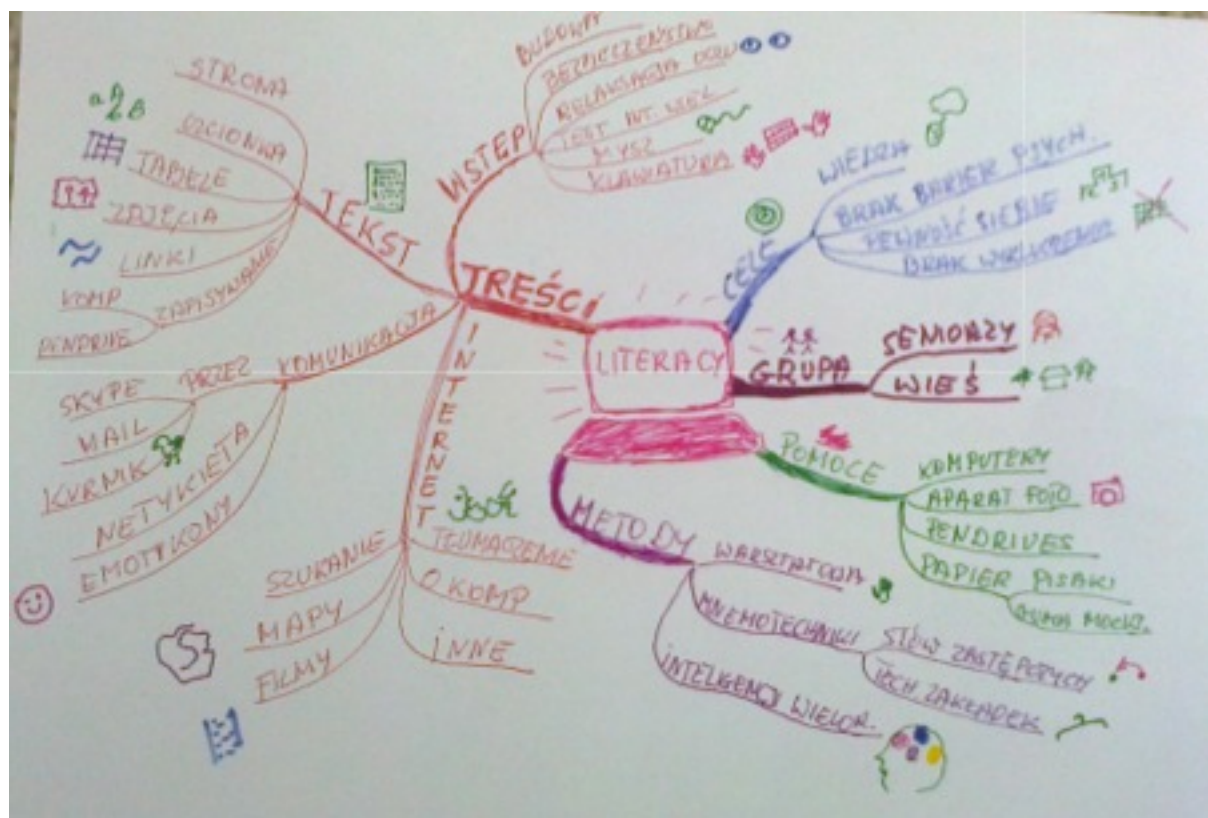 LITERACY
TREŚCI
WSTĘP
BUDOWA
BEZPIECZEŃSTWO
RELAKSACJA OCZU
TEST INT. WIEL
MYSZ
KLAWIATURA
TEKST
STRONA
CZCIONKA
TABELE
ZDJĘCIA
LINKI
ZAPISYWANIE
KOMP
PENDRIVE
KOMUNIKACJA
PRZEZ
SKYPE
MAIL
KURNIK
NETYKIETA
EMOTIKONY
INTERNET
SZUKANIE
MAPY
FILMY
TŁUMACZENIE
O KOMP
INNE
CELE
WIEDZA
BRAK BARIER PSYCH.
PEWNOŚĆ SIEBIE
BRAK
GRUPA
SENIORZY
WIEŚ
POMOCE
KOMPUTERY
APARAT FOTO
PENDRIVES
PAPIER PISAKI
METODY
WARSZTATOWA
MNEMOTECHNIKI
SŁÓW ZASTĘPCZYCH
TECH ZAKŁADEK
INTELIGENCJI WIELOR.